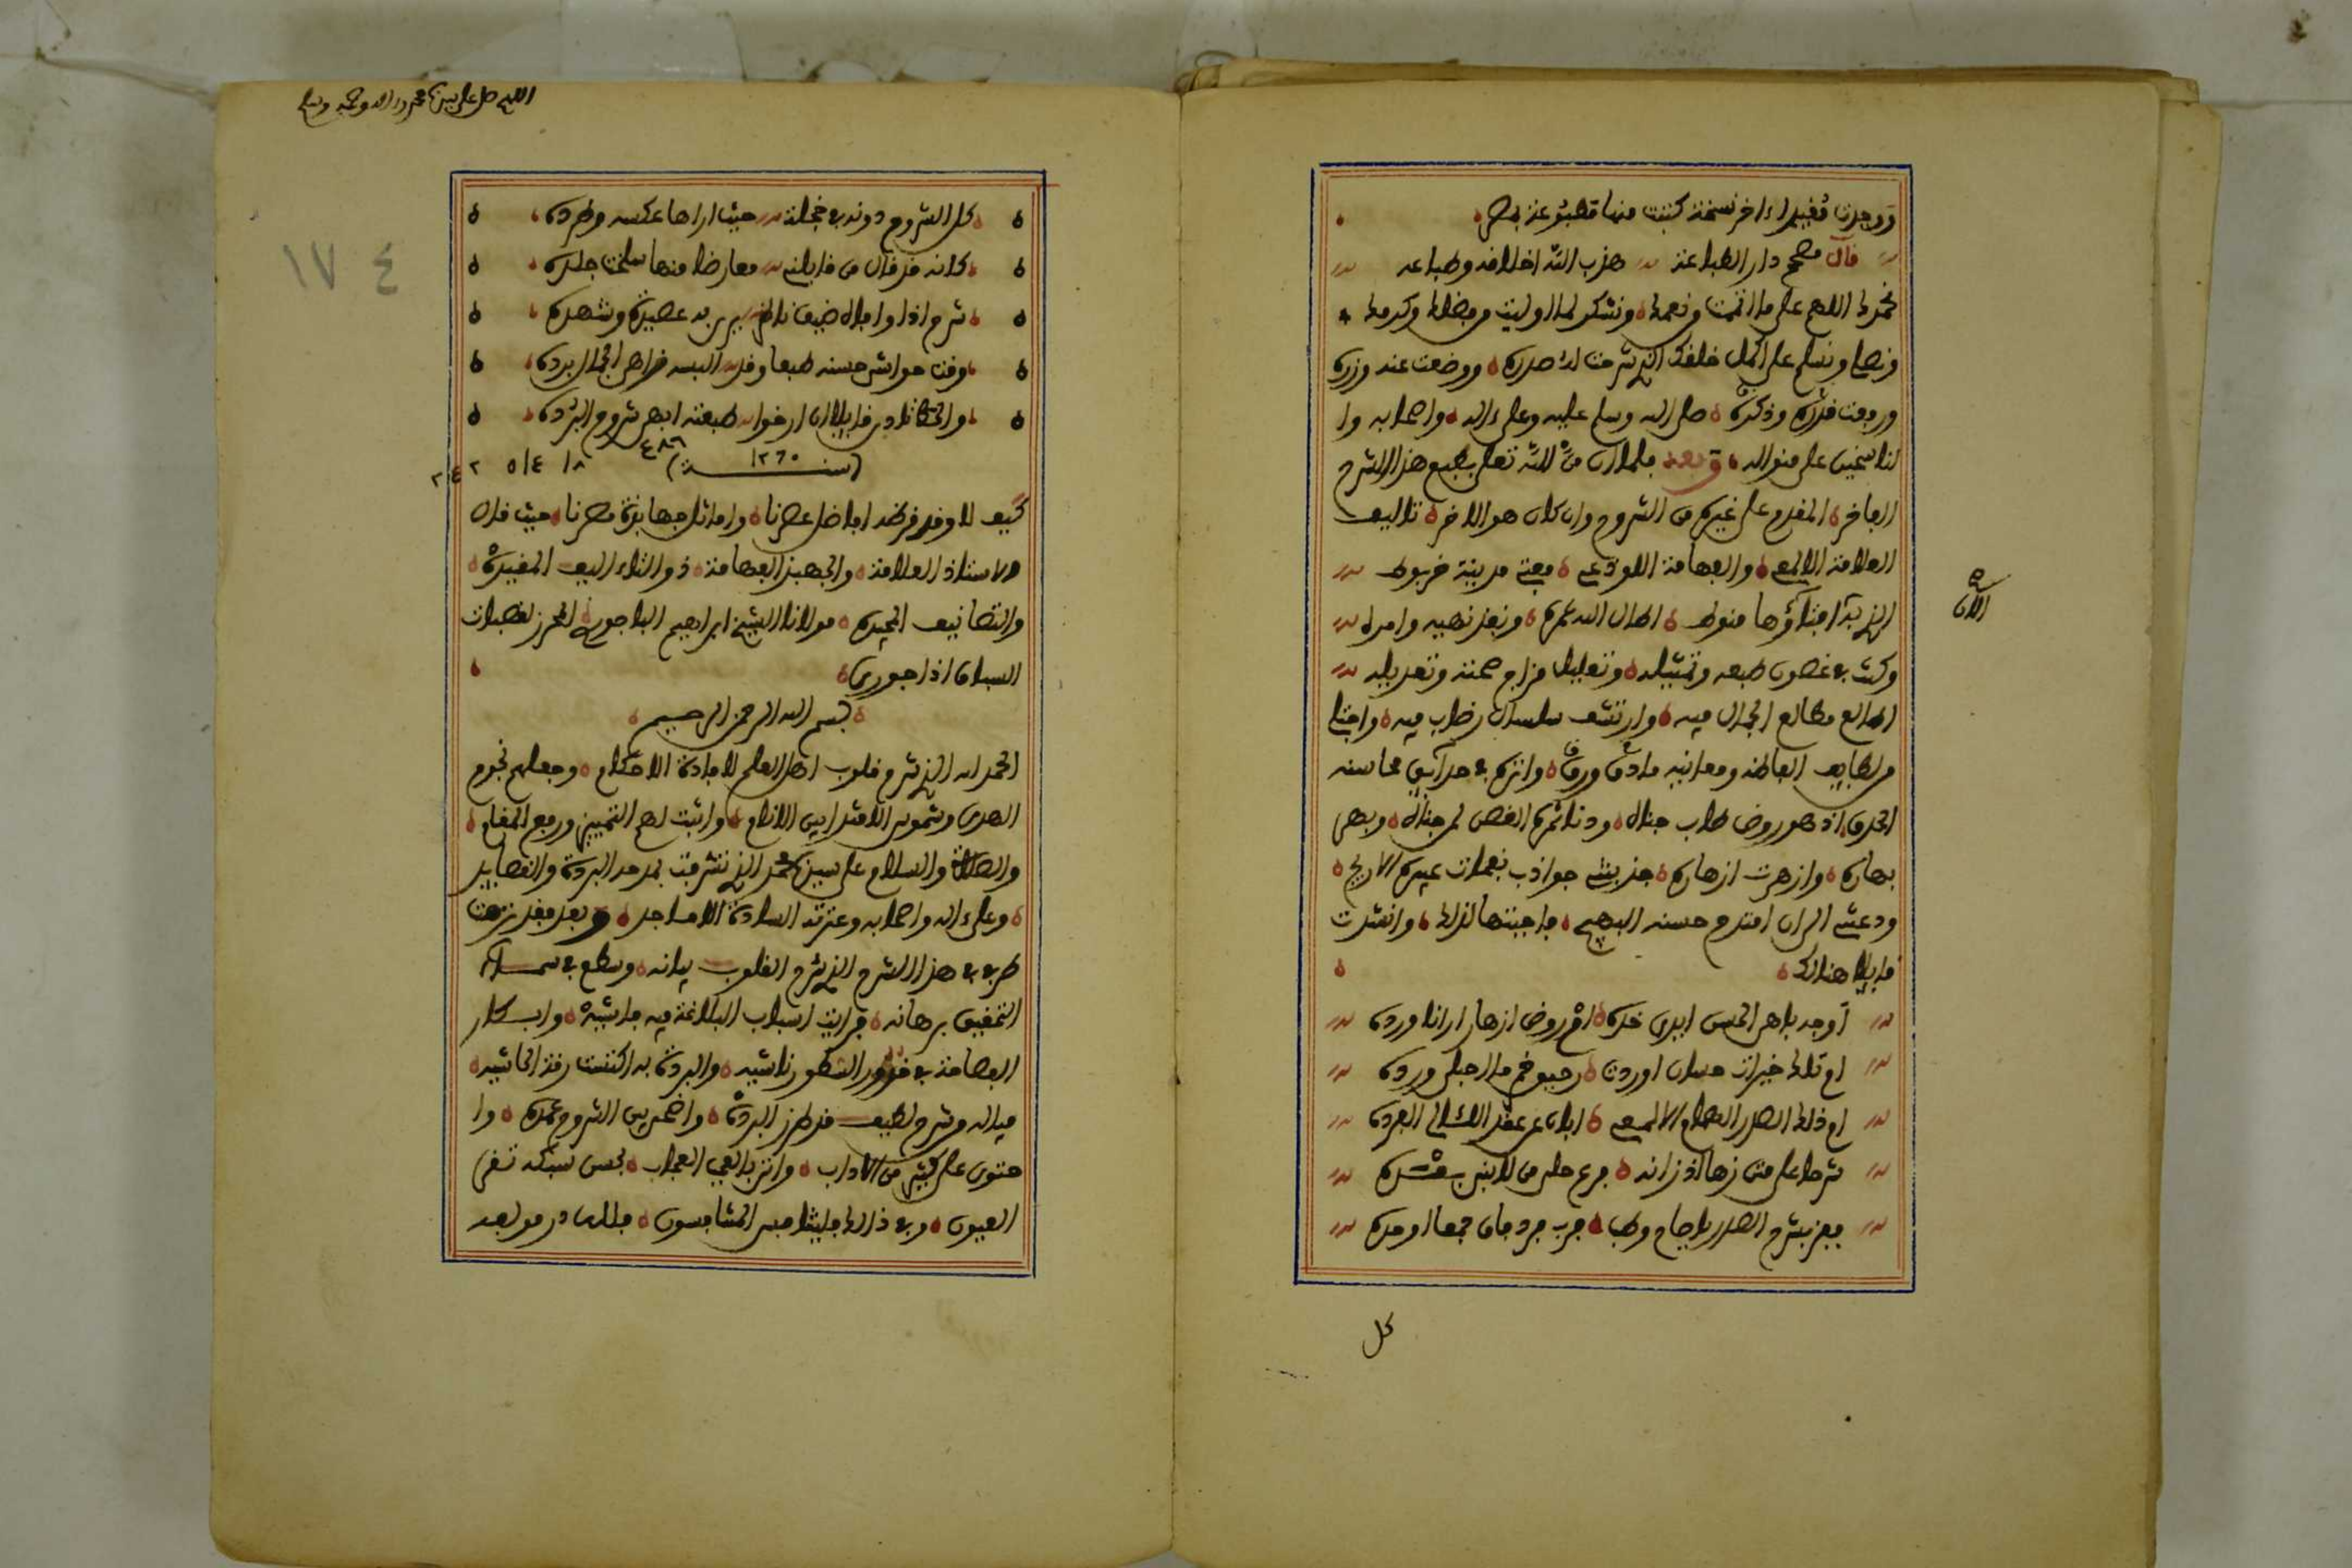 ووجدت مقيدا ءاخر نسخة كتبت منها مطبوعة بمصر
قال مصحح دار الطباعة هذب الله اخلافه وطباعه
نحمدك اللهم على ما اتممت من نعمك ونشكرك لما اوليت من فضلك وكرمك
ونصلى ونسلم على اكمل خلقك الذى شرحت له صدره ووضعت عنه وزره
ورفعت قدره وذكره صلى الله وسلم عليه وعلى ءاله واصحابه وا
لناسجين على منواله وبعد فلما ان من الله تعلى بطبع هذا الشرح
الفاخر المقدم على غيره من الشروح وان كان هو الاخر تاليف
العلامة الالمعى والفهامة اللوذعى مفتى مدينة خربوط
الذى بدا امتلآؤها منوط اطال الله عمره ونفذ نهيه وامره
الآن صح
وكنت فى غضون طبعه وتمثيله وتعليل مزاج صحته وتعديله
اطالع مطالع الجمال فيه وارتشف سلسال رضاب فيه واجتلى
من لطايف الفاظه ومعانيه ما دق ورق وانزه فى حدآيق محاسنه
الحدق اذ هو روض طاب جناه ودنا ثمره الغض لمن جناه وبهى
بهاره وازهرت ازهاره جذبتنى جواذب نفحات عبيره الاريج
ودعتنى الى ان امتدح حسنه البهيج فاجبتها لذلك وانشدت
قايلا هنالك
اوجه باهى الحسن ابدى خده ام روض ازهار ارانا ورده
ام تلك خيرات حسان اوردت رحيق خمر ما احيلى ورده
ام ذلك الصدر الهمام الالمعى ابان عن عقد اللئالى الفرده
شرحا على متن زها اذ زانه فرع حلى من لابتى بشده
ففز بشرح الصدر يا صاح وطب فرب فرد فاق جمعا وحده
كل
اللهم صل على سيدنا محمد وءاله وصحبه وسلم
١٧٤
كل الشروح دونه فى خجلة حيث اراها عكسه وطرده
كانه قد قال من قابلنى معارضا منها سلخت جلده
شرح اذا وافاه ضيف ناظر يريد به عصيره وشهده
رقت حواشى حسنه طبعا وقد البسه فراهى الجمال برده
والحظ نادى قايلا ان ارخوا طبعته ابهى شروح البرده
(سنة ١٢٦٠) ٤٨٦ ١٨ ٥١٤ ٢٤٢
كيف لا وقد قرظه افاضل عصرنا واماثل جهابذة مصرنا حيث قال
الاستاذ العلامة والجهبذ الفهامة ذو التئاليف المفيدة
والتصانيف المجيده مولانا الشيخ ابراهيم الباجورى المحرز لقصبات
السباق اذا جورى
بسم الله الرحمن الرحيم
الحمد لله الذى شرح قلوب اهل العلم لافادة الاحكام وجعلهم نجوم
الهدى وشموس الاقتدا بين الانام واثبت لهم التمييز ورفع المقام
والصلاة والسلام على سيدنا محمد الذى تشرفت بمدحه البردة والقصايد
وعلى ءاله واصحابه وعترته السادة الاماجد وبعد فقد نزهت
طرفى فى هذا الشرح الذى شرح القلوب بيانه وسطع فى سماء
التحقيق برهانه فرايت اسباب البلاغة فيه فاشية وابكار
الفصاحة فى خدور السطور ناشيه والبردة به اكتست رقة الحاشيه
فياله من شرح لطيف قد طرز البردة واضحى بين الشروح عمده وا
حتوى على كثير من الاداب واتى بالعجب العجاب لحسن سبكه تقر
العيون وفى ذلك فليتنافس المتنافسون فلله در مولفه